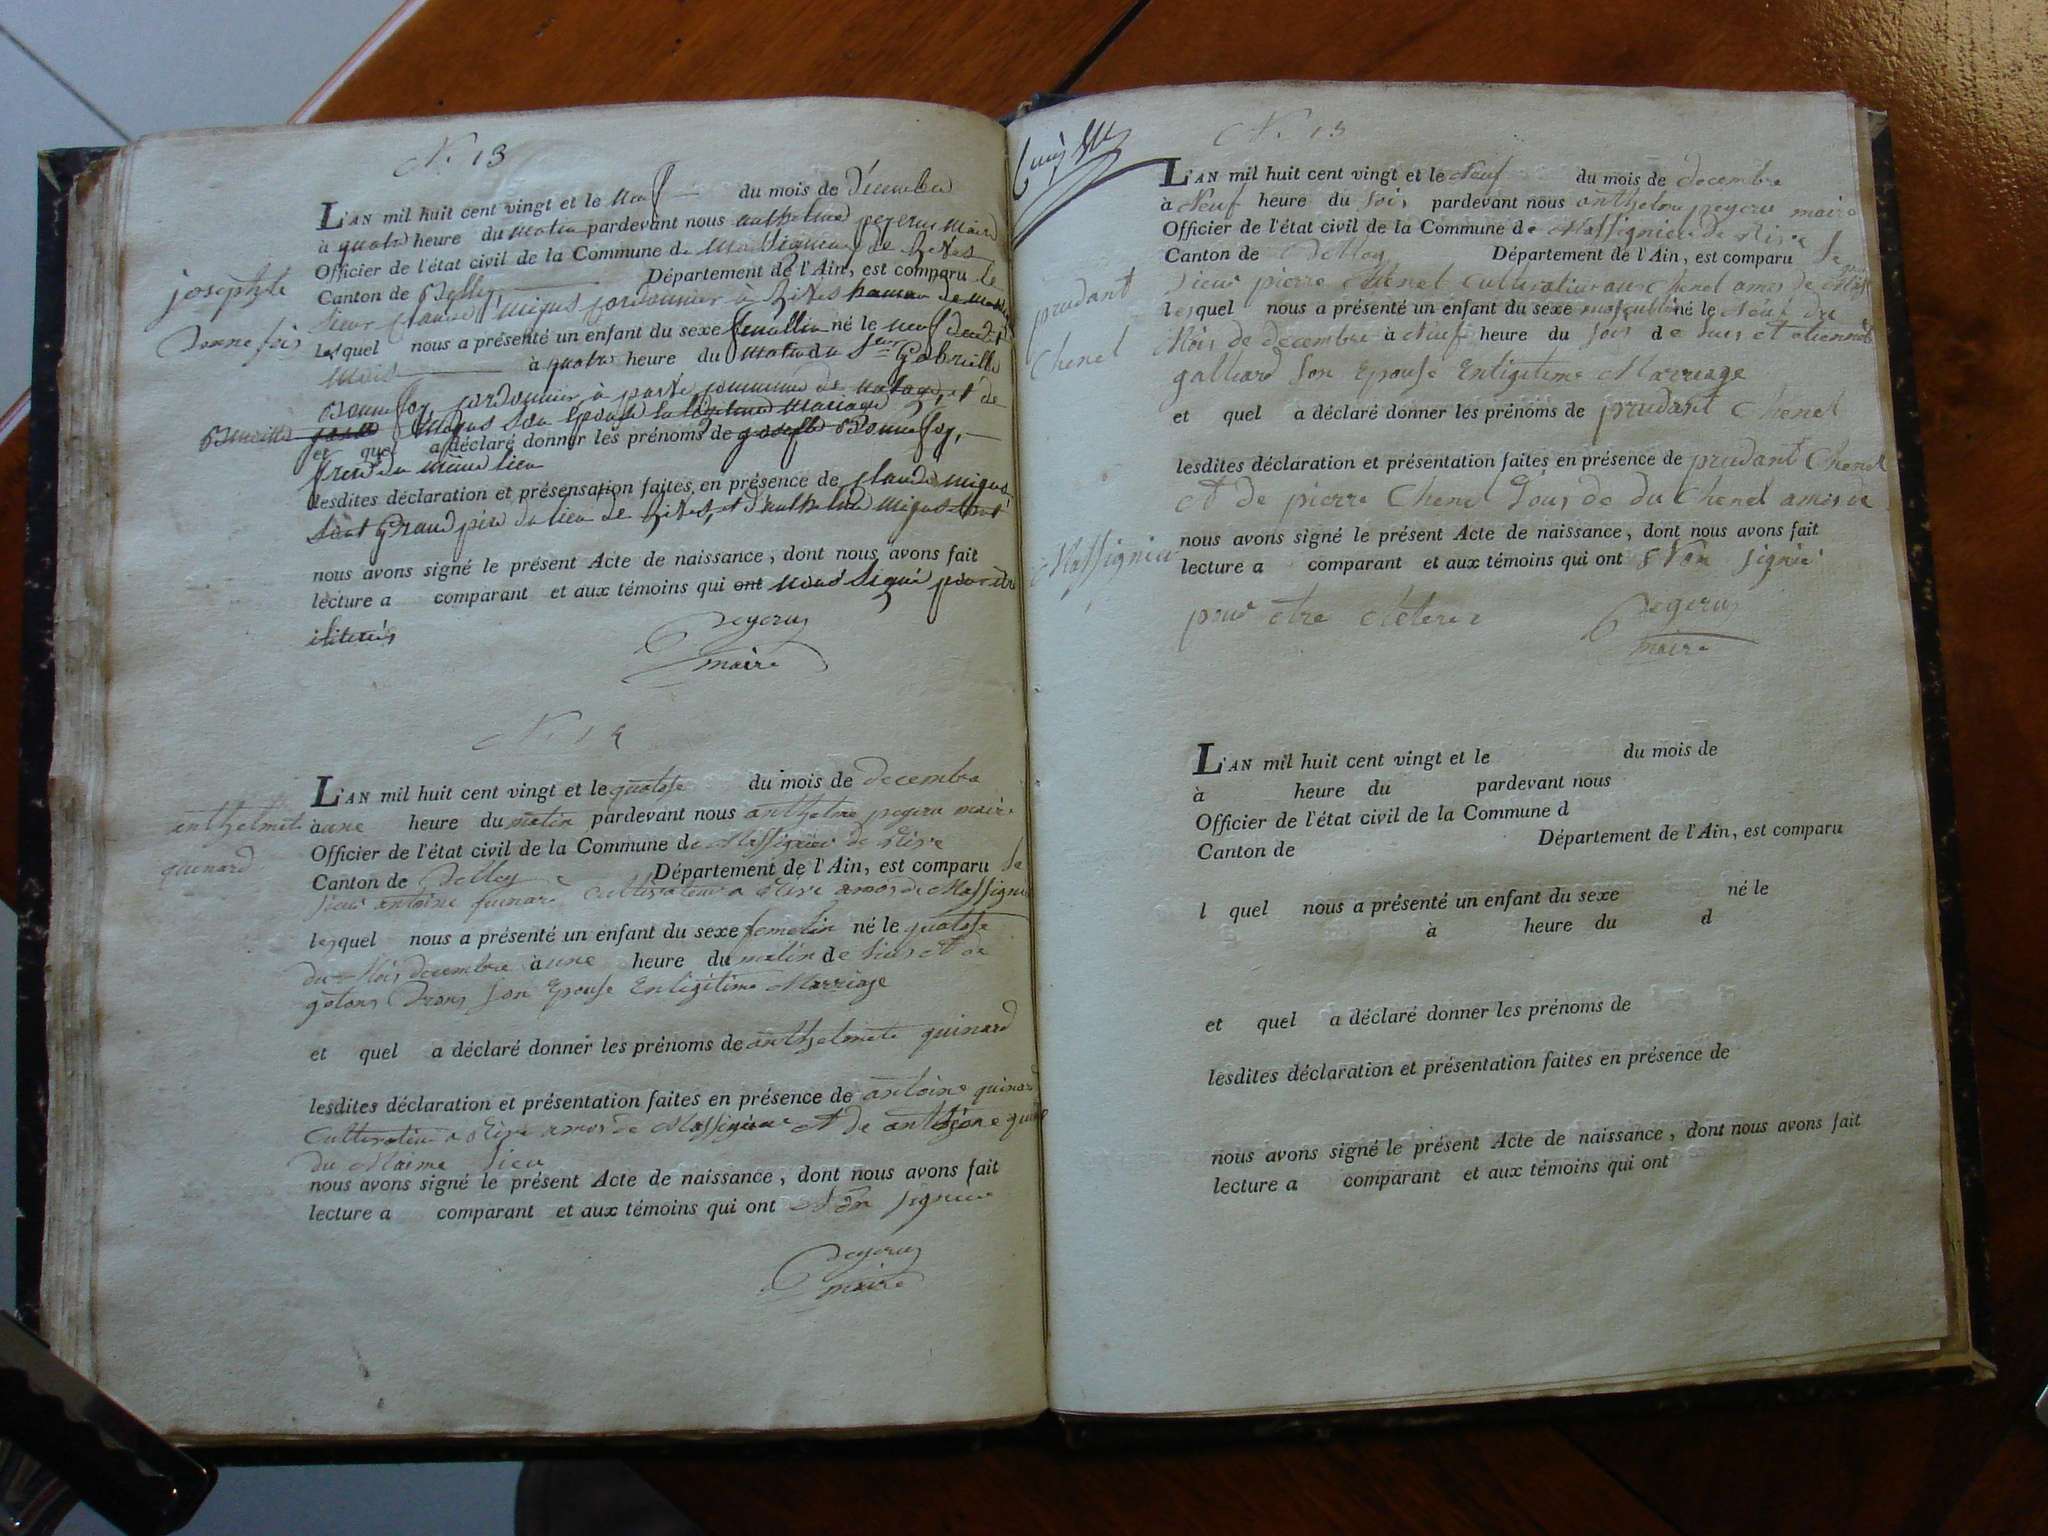 N. 13
L'AN mil huit cent vingt et le neuf du mois de décembre
à quatre heure du matin pardevant nous anthelme peyeru maire
Officier de l'état civil de la Commune de Massignieu de Rives
Canton de Belley Département de l'Ain, est comparu le
sieur claude migus cordonnier à Rives hameau de
josephte
Bonnefois
lequel nous a présenté un enfant du sexe femellin né le neuf dudit
mois à quatre heure du matin du Sr Gabrielle
Bonnefoy, cordonnier à commune de et de
migus son épouse en légitime mariage
et quel a déclaré donner les prénoms de josephte Bonnefoy,
du même lieu
lesdites déclaration et présensation faites en présence de claude migus,
Grand père du lieu de Rives, et d'anthelme migus
nous avons signé le présent Acte de naissance, dont nous avons fait
lecture a comparant et aux témoins qui ont non signé pour être
iliterés
Peyeru
maire
N. 14
L'AN mil huit cent vingt et le quatose du mois de decembre
à une heure du matin pardevant nous anthelme peyeru maire
Officier de l'état civil de la Commune de Massignieu de Rive
Canton de Belley Département de l'Ain, est comparu le
sieur antoine quinard cultivateur a Rive amos de Massignieu
anthelmete
quinard
lequel nous a présenté un enfant du sexe femelin né le quatose
du Mois decembre à une heure du matin de sieur et de
son Epouse En ligitime Marriage
et quel a déclaré donner les prénoms de anthelmete quinard
lesdites déclaration et présentation faites en présence de antoine quinard
cultivateur a Rive amos de Massignieu et de
du Maime lieu
nous avons signé le présent Acte de naissance, dont nous avons fait
lecture a comparant et aux témoins qui ont Non signé
Peyeru
maire
N. 15
L'AN mil huit cent vingt et le Neuf du mois de decembre
à Neuf heure du soir pardevant nous anthelme peyeru maire
Officier de l'état civil de la Commune de Massignieu de Rive
Canton de Belley Département de l'Ain, est comparu le
sieur pierre Chenel cultivateur au Chenel amos de
prudant
Chenel
lequel nous a présenté un enfant du sexe masculin né le Neuf du
Mois de decembre à Neuf heure du soir de sieur et
galliard son Epouse En ligitime Marriage
et quel a déclaré donner les prénoms de prudant Chenel
lesdites déclaration et présentation faites en présence de prudant Chenel
et de pierre Chenel tous de du Chenel amos de
Massignieu
nous avons signé le présent Acte de naissance, dont nous avons fait
lecture a comparant et aux témoins qui ont Non signié
pour etre
Peyeru
maire
L'AN mil huit cent vingt et le du mois de
à heure du pardevant nous
Officier de l'état civil de la Commune d
Canton de Département de l'Ain, est comparu
l quel nous a présenté un enfant du sexe né le
à heure du d
et quel a déclaré donner les prénoms de
lesdites déclaration et présentation faites en présence de
nous avons signé le présent Acte de naissance, dont nous avons fait
lecture a comparant et aux témoins qui ont